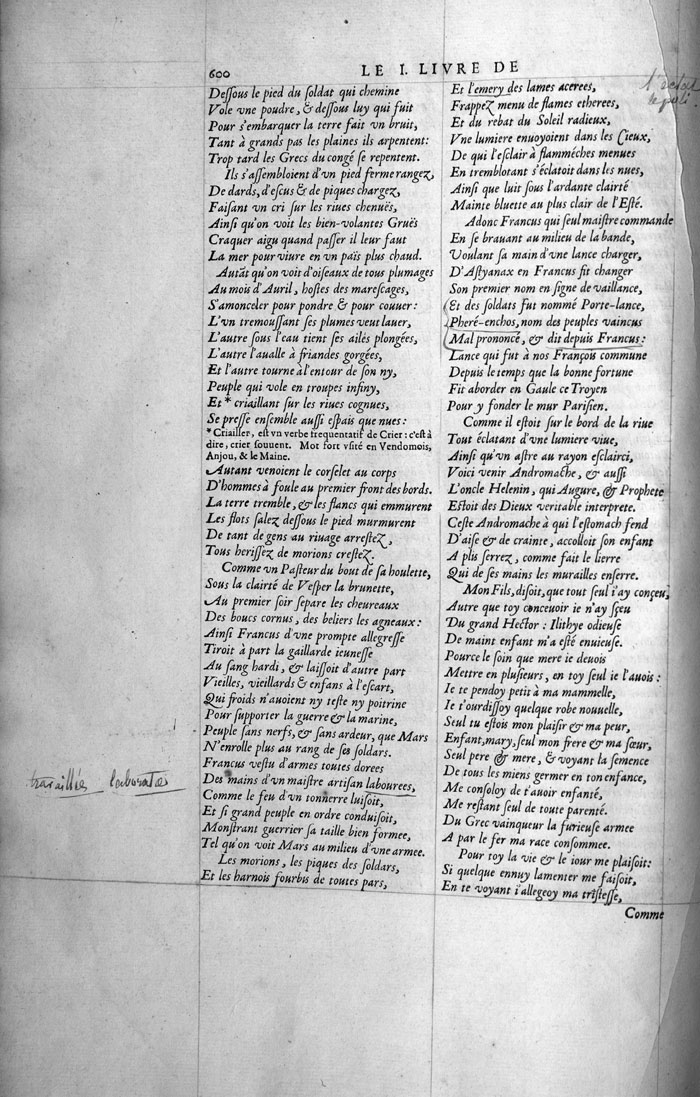 600
LE I. LIVRE DE
Dessous le pied du soldat qui chemine
Vole vne poudre, & dessous luy qui fuit
Pour s'embarquer la terre fait vn bruit,
Tant à grands pas les plaines ils arpentent:
Trop tard les Grecs du congé se repentent.
Ils s'assembloient d'vn pied ferme rangez,
De dards, d'escus & de piques chargez,
Faisant vn cri sur les riues chenuës,
Ainsi qu'on voit les bien-volantes Gruës
Craquer aigu quand passer il leur faut
La mer pour viure en vn païs plus chaud.
Autãt qu'on voit d'oiseaux de tous plumages
Au mois d'Auril, hostes des marescages,
S'amonceler pour pondre & pour couuer:
L'vn tremoussant ses plumes veut lauer,
L'autre sous l'eau tient ses ailes plongées,
L'autre l'aualle à friandes gorgées,
Et l'autre tourne à l'entour de son ny,
Peuple qui vole en troupes infiny,
Et * criaillant sur les riues cognues,
Se presse ensemble aussi espais que nues:
* Criailler, est vn verbe frequentatif de Crier: c'est à
dire, crier souuent. Mot fort vsité en Vendomois,
Anjou, & le Maine.
Autant venoient le corselet au corps
D'hommes à foule au premier front des bords.
La terre tremble, & les flancs qui emmurent
Les flots salez dessous le pied murmurent
De tant de gens au riuage arrestez,
Tous herissez de morions crestez.
Comme vn Pasteur du bout de sa houlette,
Sous la clairté de Vesper la brunette,
Au premier soir separe les cheureaux
Des boucs cornus, des beliers les agneaux:
Ainsi Francus d'vne prompte allegresse
Tiroit à part la gaillarde ieunesse
Au sang hardi, & laissoit d'autre part
Vieilles, vieillards & enfans à l'escart,
Qui froids n'auoient ny teste ny poitrine
Pour supporter la guerre & la marine,
Peuple sans nerfs, & sans ardeur, que Mars
N'enrolle plus au rang de ses soldars.
Francus vestu d'armes toutes dorees
Des mains d'vn maistre artisan labourees,
travaillées laboratas
Comme le feu d'vn tonnerre luisoit,
Et si grand peuple en ordre conduisoit,
Monstrant guerrier sa taille bien formee,
Tel qu'on voit Mars au milieu d'vne armee.
Les morions, les piques des soldars,
Et les harnois fourbis de toutes pars,
Et l'emery des lames acerees,
Frappez menu de flames etherees,
Et du rebat du Soleil radieux,
Vne lumiere enuoyoient dans les Cieux,
De qui l'esclair à flamméches menues
En tremblotant s'éclatoit dans les nues,
Ainsi que luit sous l'ardante clairté
Mainte bluette au plus clair de l'Esté.
Adonc Francus qui seul maistre commande
En se brauant au milieu de la bande,
Voulant sa main d'vne lance charger,
D'Astyanax en Francus fit changer
Son premier nom en signe de vaillance,
Et des soldats fut nommé Porte-lance,
Pheré-enchos, nom des peuples vaincus
Mal prononcé, & dit depuis Francus:
Lance qui fut à nos François commune
Depuis le temps que la bonne fortune
Fit aborder en Gaule ce Troyen
Pour y fonder le mur Parisien.
Comme il estoit sur le bord de la riue
Tout éclatant d'vne lumiere viue,
Ainsi qu'vn astre au rayon esclairci,
Voici venir Andromache, & aussi
L'oncle Helenin, qui Augure, & Prophete
Estoit des Dieux veritable interprete.
Ceste Andromache à qui l'estomach fend
D'aise & de crainte, accolloit son enfant
A plis serrez, comme fait le lierre
Qui de ses mains les murailles enserre.
Mon Fils, disoit, que tout seul i'ay conçeu,
Autre que toy conceuoir ie n'ay sçeu
Du grand Hector: Ilithye odieuse
De maint enfant m'a esté enuieuse.
Pource le soin que mere ie deuois
Mettre en plusieurs, en toy seul ie l'auois:
Ie te pendoy petit à ma mammelle,
Ie t'ourdissoy quelque robe nouuelle,
Seul tu estois mon plaisir & ma peur,
Enfant, mary, seul mon frere & ma sœur,
Seul pere & mere, & voyant la semence
De tous les miens germer en ton enfance,
Me consoloy de t'auoir enfanté,
Me restant seul de toute parenté.
Du Grec vainqueur la furieuse armee
A par le fer ma race consommee.
Pour toy la vie & le iour me plaisoit:
Si quelque ennuy lamenter me faisoit,
En te voyant i'allegeoy ma tristesse,
Comme